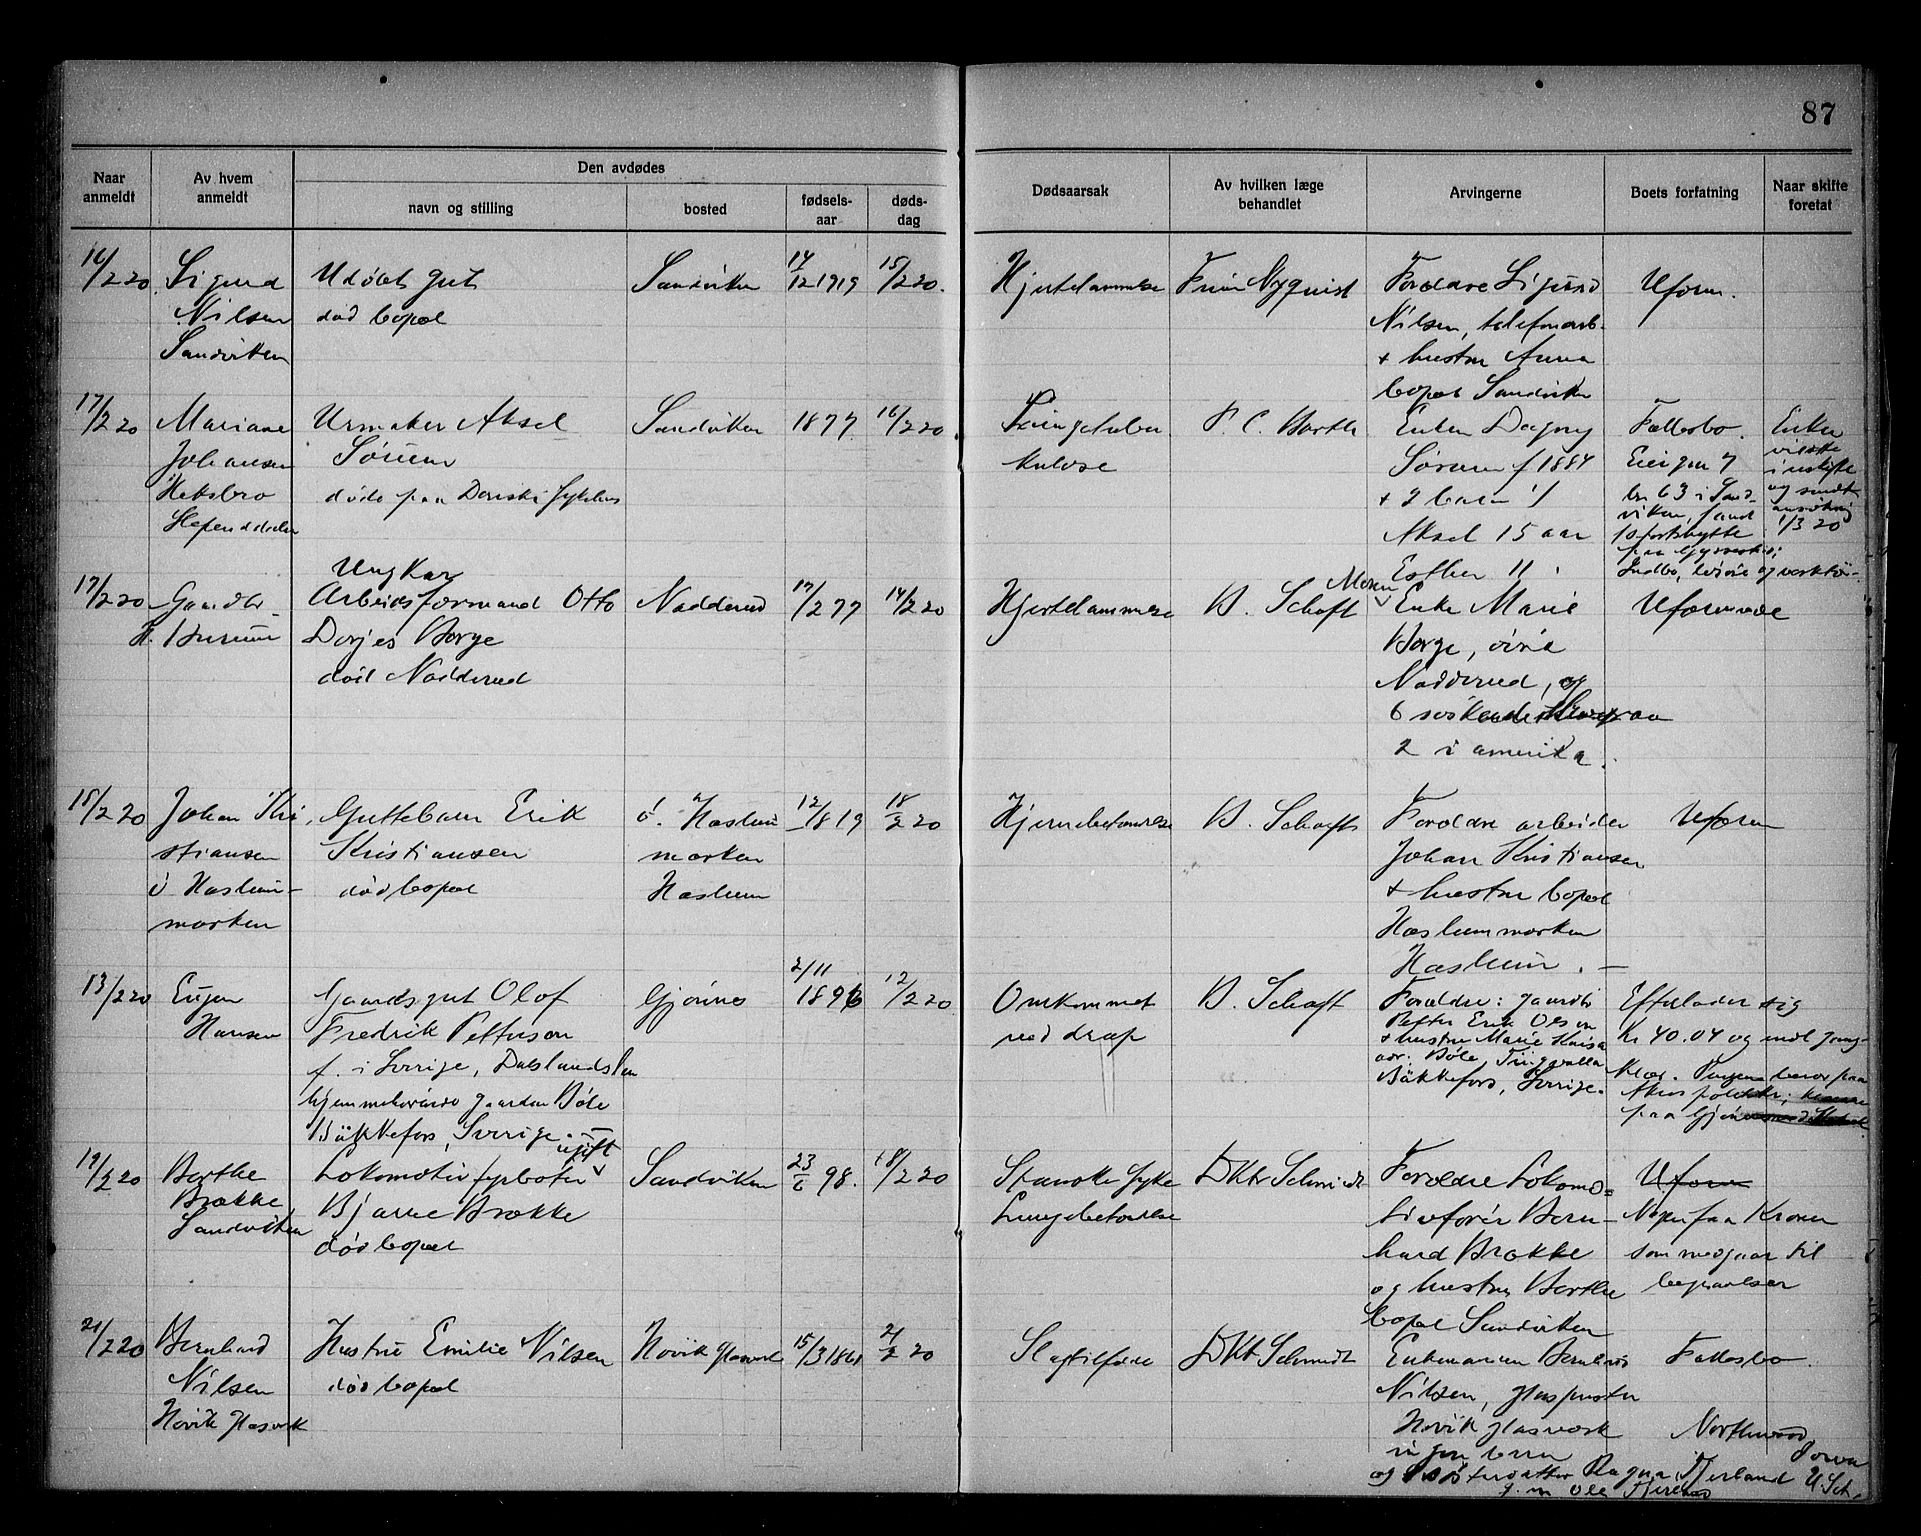 87
Naar anmeldt
Av hvem anmeldt
Den avdødes
navn og stilling
bosted
fødsels-aar
døds-dag
Dødsaarsak
Av hvilken læge behandlet
Arvingerne
Boets forfatning
Naar skifte foretat
16/2 20
Sigurd
Nilsen
Sandviken
Udøbt gut
død bopæl
Sandviken
14/12 1919
15/2 20.
Hjertelammelse
Nyquist
Forældre Sigurd
Nilsen, telefonarb.
+ hustru Anna
bopæl Sandviken
Uform.
17/2 20
Mariane
Johansen
Urmaker Aksel
Sørum
døde paa Sykehus
Sandviken
1877
16/2 20
Lungetuber
kulose
Enken Dagny
Sørum f 1884
+ 2 barn
Aksel 15 aar
Esther 11
Fællesbo.
bn 63 i Sand
viken,
Indbo, og
Enken
og sendt
1/3 20
17/2 20
Ungkar
Arbeidsformand Otto
Dorjes Borge
død Nadderud
Nadderud
17/2 77
14/2 20
Hjertelammelse
B. Schøft
Moren
Enke Marie
Borge,
Nadderud, og
6 søskende
2 i amerika.
Uformuende
18/2 20
Johan Kri
stiansen
Haslum-
marken
Guttebarn Erik
Kristiansen
død bopæl
ø. Haslum
marken
Haslum
12/8 19
18/2 20
Hjernebetændelse
B. Schøft
Forældre arbeider
Johan Kristiansen
+ hustru bopæl
Haslummarken
Haslum. -
Uform
13/2 20
Eugen
Hansen
Gaardsgut Olof
Fredrik Petterson
f. i Sverige, Dalslands len
hjemmehørende gaarden Bøle
Bäkkefors, Sverige. -
Gjønnes
2/11
1896
12/2 20
Omkommet
ved drap
B. Schøft
Forældre: gaardbr
Petter Erik Olson
+ hustru Marie
adr. Bøle, Tingvalla
Bäkkefors, Sverige.
Efterlader sig
Kr 40.04 og endl gang-
klær. Pengene beror paa
Akers politikt.;
paa
19/2 20
Berthe
Brække
Sandviken
ugift
Lokomotivfyrbøter
Bjarne Brække
død bopæl
Sandviken
23/6 98.
18/2 20
Spanske syke
Lungebetændelse
Dktr Schmidt
Forældre Lokomo=
tivfører Bern-
hard Brække
og hustru Berthe
bopæl Sandviken
Uform
Noen faa Kroner
som medgaar til
begravelsen
21/2 20
Bernhard
Nilsen
Høvik Glasverk
Hustru Emilie Nilsen
død bopæl
Høvik Glasverk
15/3 1861
21/2 20
Slagtilfælde
Dktr Schmidt
Enkemanden Bernhard
Nilsen, glaspuster
Høvik glasværk
ingen barn
og Søsterdatter Ragna Fjerland
g. m Ole Fjerland
Fællesbo.
Northwood
Iowa
U.St.